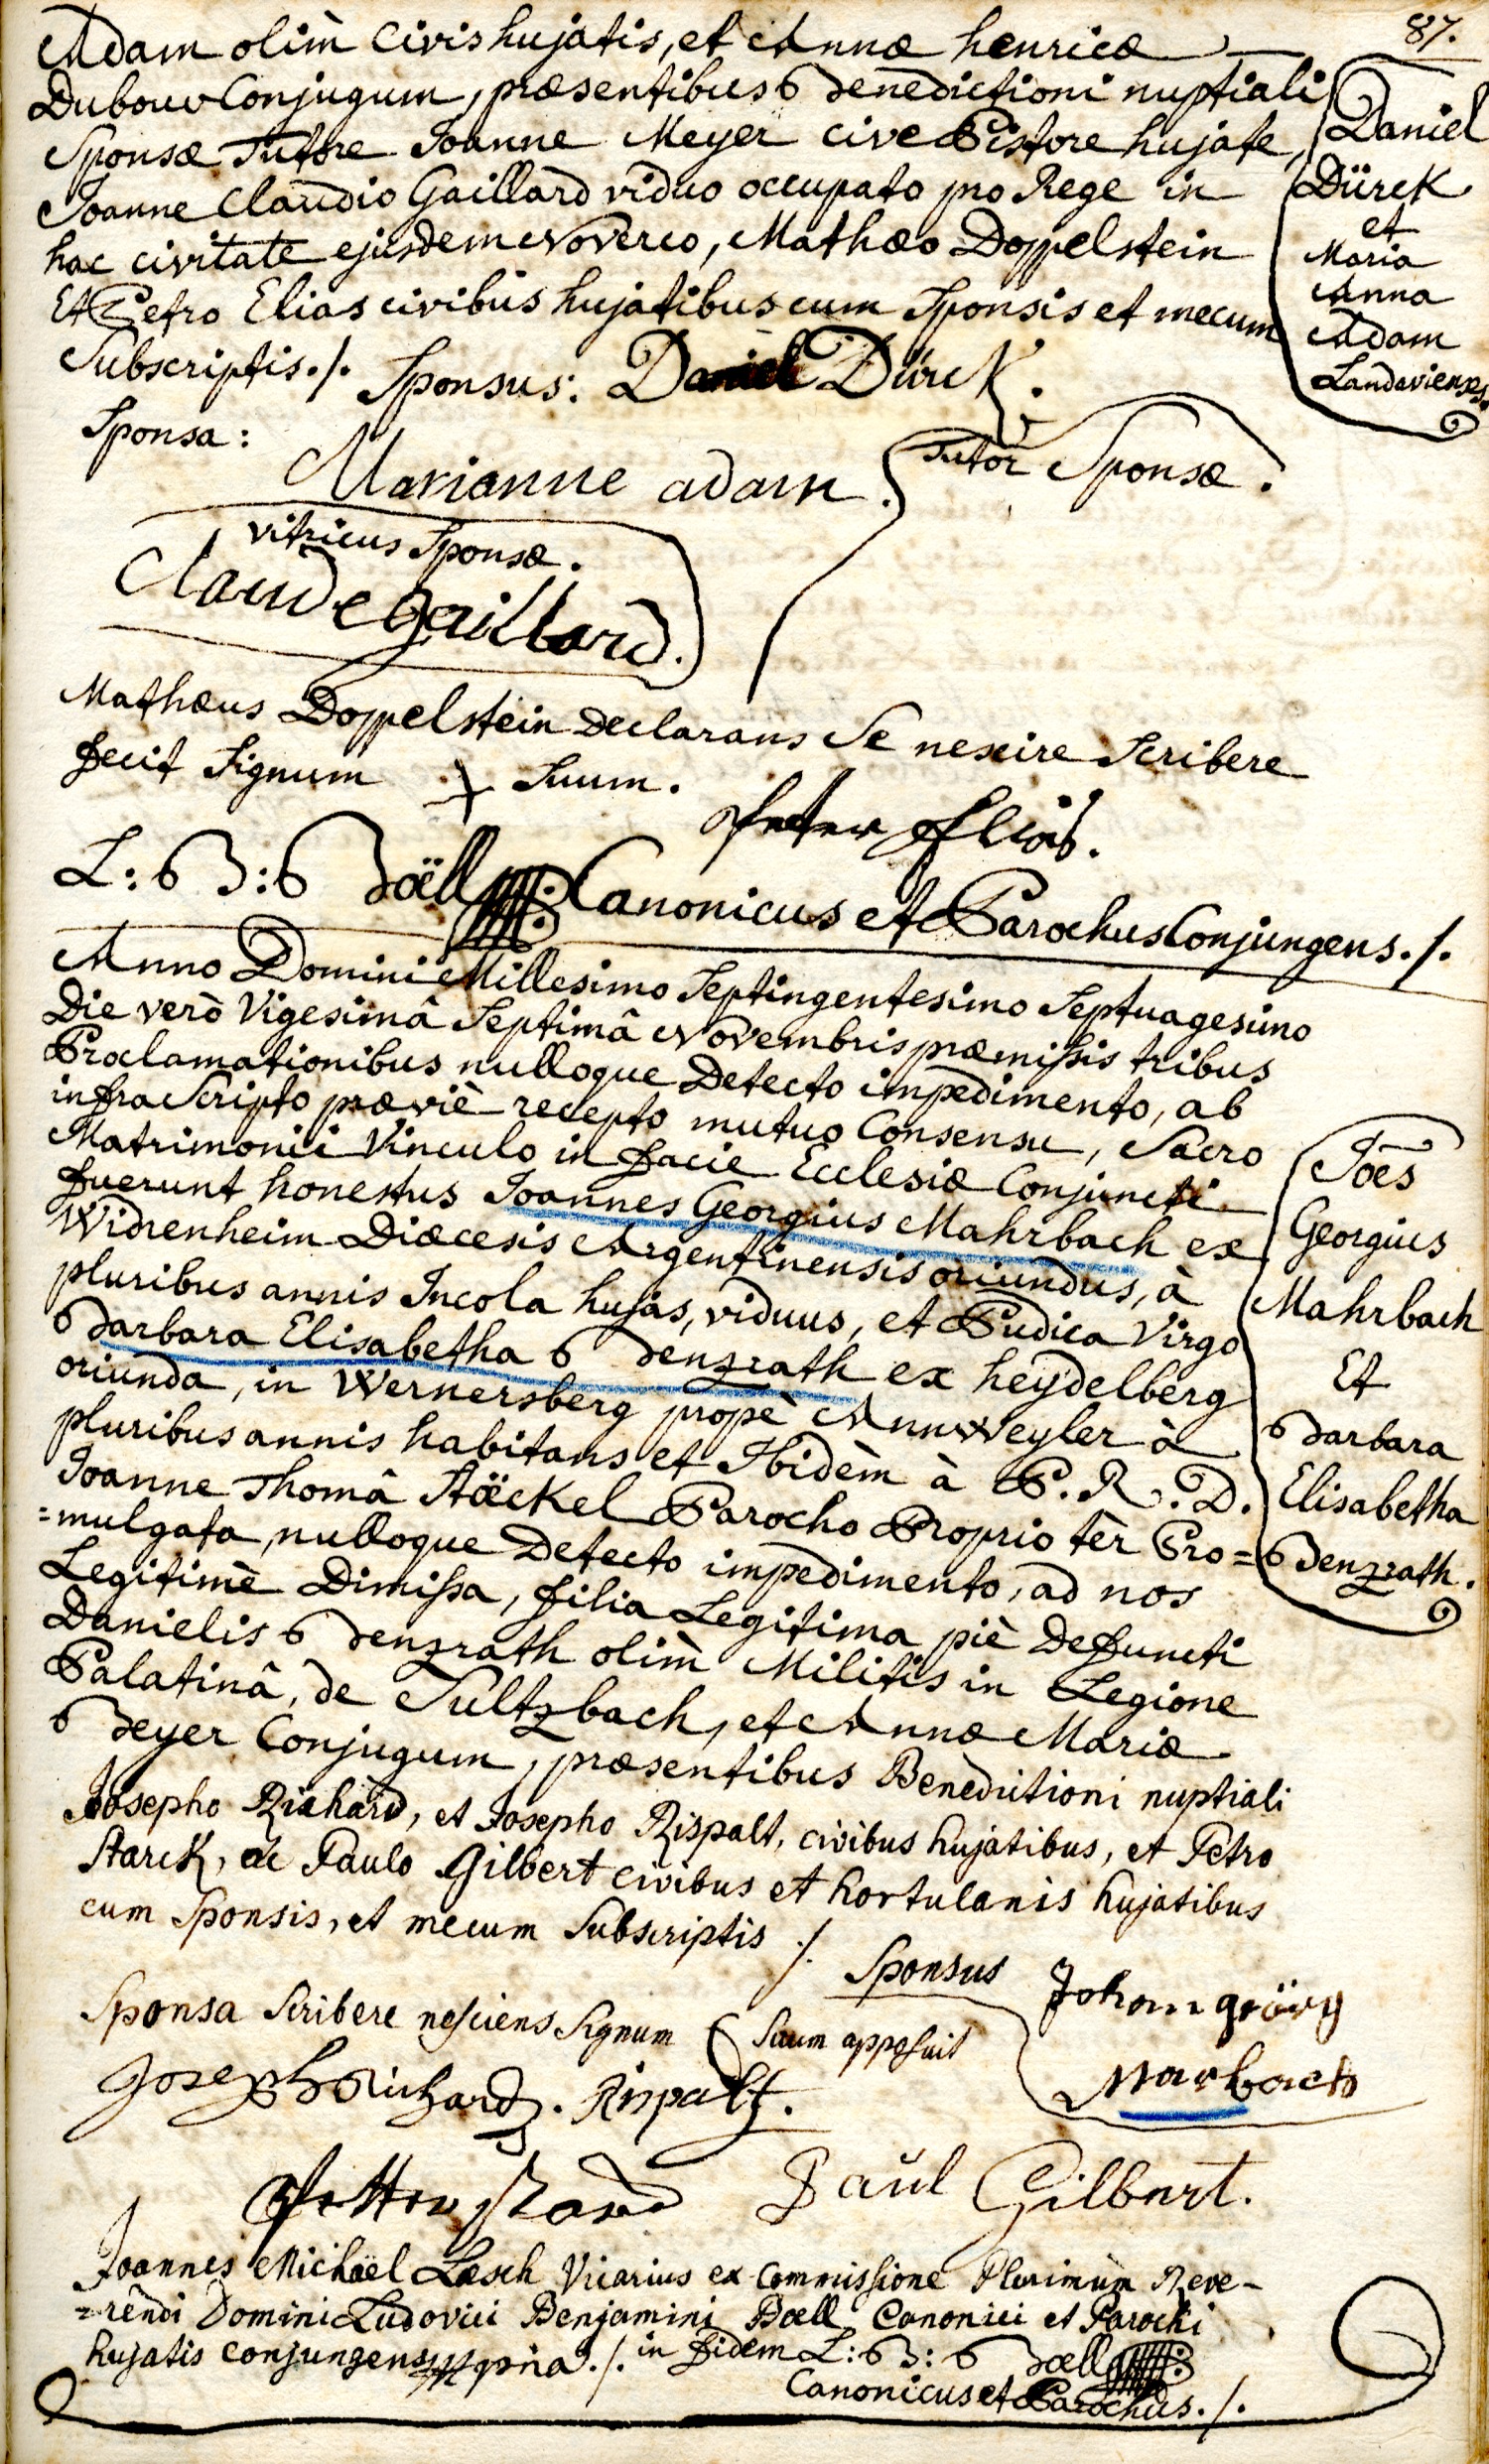 87.
Adam olim̀ Civis hujatis, et Annæ henricæ
Dubouv Conjugum, præsentibus Benedictioni nuptiali
Sponsæ Tutore Joanne Meyer cive Pistore hujate,
Joanne Claudio Gaillard viduo occupato pro Rege in
hac civitate ejusdem Noverco, Mathæo Doppelstein
Et Petro Elias civibus hujatibus cum Sponsis et mecum
Subscriptis ./. Sponsus: Daniel Dürck.
Daniel
Dürck
et
Maria
Anna
Adam
Landaviensis.
Sponsa:
Marianne adam.
Tutor Sponsæ.
vitricus Sponsæ.
Claude gaillard.
Mathæus Doppelstein Declarans Se nescire Scribere
fecit Signum + Suum.
Peter Elias.
L: B: Böell Canonicus et Parochus Conjungens ./.
Anno Domini Millesimo Septingentesimo Septuagesimo
Die verò Vigesimâ Septimâ Novembris præmissis tribus
Proclamationibus nulloque Detecto impedimento, ab
infra Scripto præviè recepto mutuo Consensu, Sacro
Matrimonii Vinculo in facie Ecclesiæ Conjuncti
fuerunt honestus Joannes Georgius Mahrbach ex
Widrenheim Diæcesis Argentinensis oriundus, à
pluribus annis Incola hujas, viduus, et Pudica Virgo
Barbara Elisabetha Benzrath ex heydelberg
oriunda, in Wernersberg propè Annweyler à
pluribus annis habitans et Ibidèm à P. R. D.
Joanne Thomâ Stöckel Parocho Proprio tèr Pro=
=mulgata, nulloque Detecto impedimento, ad nos
Legitimè Dimissa, filia Legitima piè Defuncti
Danielis Benzrath olim̀ Militis in Legione
Palatinâ, de Sultzbach, et Annæ Mariæ
Beyer Conjugum, præsentibus Benedictioni nuptiali
Josepho Richard, et Josepho Rispalt, civibus hujatibus, et Petro
Starck, ac Paulo Gilbert civibus et hortulanis hujatibus
cum Sponsis, et mecum Subscriptis ./.
Joẽs
Georgius
Mahrbach
Et
Barbara
Elisabetha
Benzrath.
Sponsus Johann görg
Marbach
Sponsa Scribere nesciens Signum ( Suum apposuit
Joseph Richard. Rispalt.
Paul Gilbert.
Joannes Michaël Læsch Vicarius ex Commissione Plurimùm Reve-
=rendi Domini Ludovici Benjamini Böell Canonici et Parochi
hujatis conjungens ppria ./. in fidem L: B: Böell
Canonicus et Parochus ./.